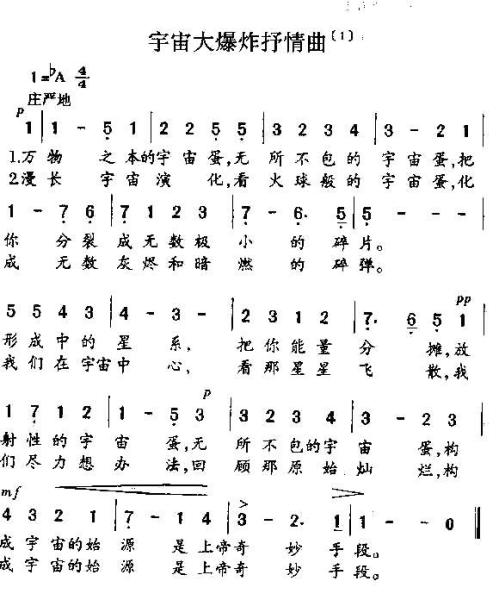 宇宙大爆炸抒情曲〔1〕
1=♭A 4/4
庄严地
p
1 | 1 - 5 1 | 2 2 5 5 | 3 2 3 4 | 3 - 2 1 |
1.万物之本的宇宙蛋,无所不包的宇宙蛋,把
2.漫长宇宙演化,看火球般的宇宙蛋,化
1 - 7 6 | 7 1 2 3 | 7 - 6. 5 | 5 - - - |
你分裂成无数极小的碎片。
成无数灰烬和暗燃的碎弹。
pp
5 5 4 3 | 4 - 3 - | 2 3 1 2 | 7. 6 5 1 |
形成中的星系,把你能量分摊,放
我们在宇宙中心,看那星星飞散,我
p
1 7 1 2 | 1 - 5 3 | 3 2 3 4 | 3 - 2 3 |
射性的宇宙蛋,无所不包的宇宙蛋,构
们尽力想办法,回顾那原始灿烂,构
mf >
4 3 2 1 | 7 - 1 4 | 3 - 2. 1 | 1 - - 0 ‖
成宇宙的始源是上帝奇妙手段。
成宇宙的始源是上帝奇妙手段。